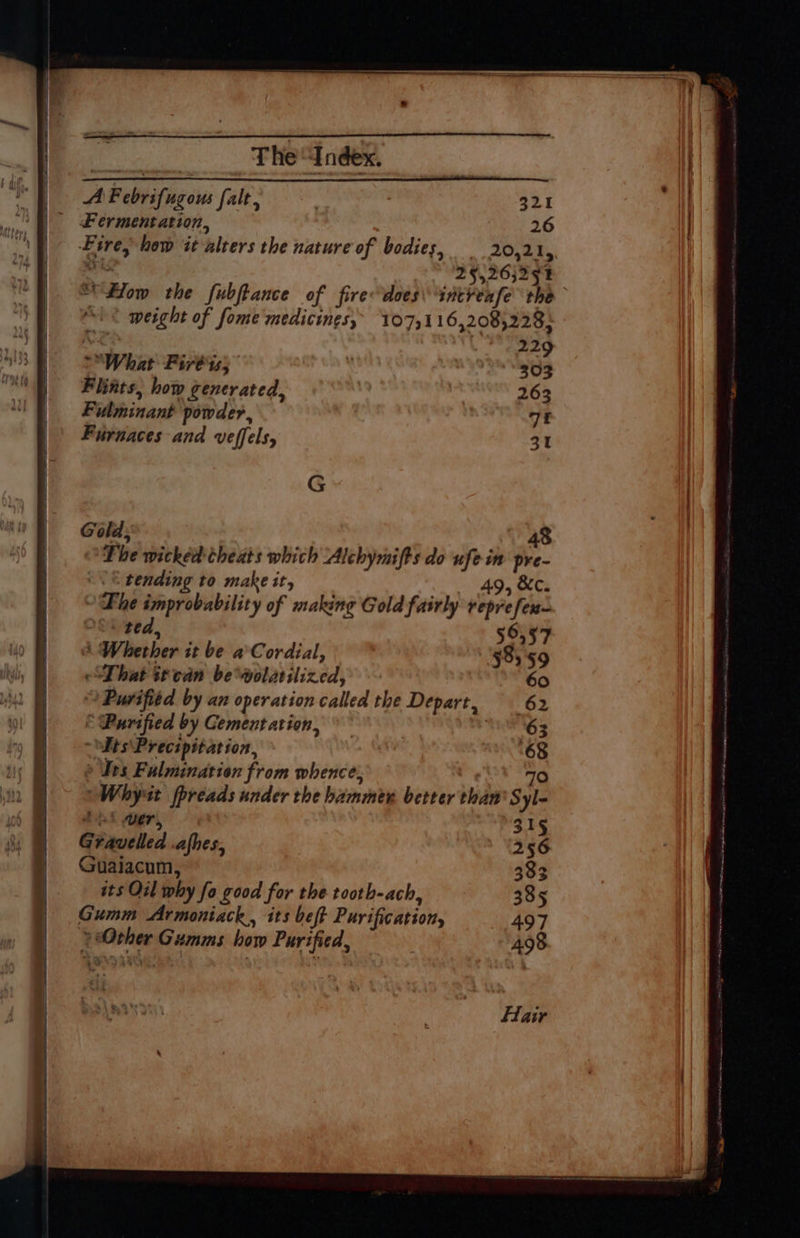 The Index.
A Febrifugous ſalt, 321
Fermentation, 26
Fire, how it alters the nature of bodies, 20,21,
25,26,251
How the ſubſtance of fire does increaſe the
weight of ſome medicines, 107,116,208,228,
229
What Fire is, 303
Flints, how generated, 263
Fulminant powder, 71
Furnaces and veſſels, 31
G
Gold, 48
The wicked cheats which Alchymiſts do uſe in pre-
tending to make it, 49, &c.
The improbability of making Gold fairly repreſen-
ted, 56,57
Whether it be a Cordial, 58,59
That it can be volatilized, 60
Purified by an operation called the Depart, 62
Purified by Cementation, 63
Its Precipitation, 68
Its Fulmination from whence, 70
Why it ſpreads under the hammer better than Syl-
ver, 315
Gravelled aſhes, 256
Guaiacum, 383
its Oil why ſo good for the tooth-ach, 385
Gumm Armoniack, its beſt Purification, 497
Other Gumms how Purified, 498
Hair